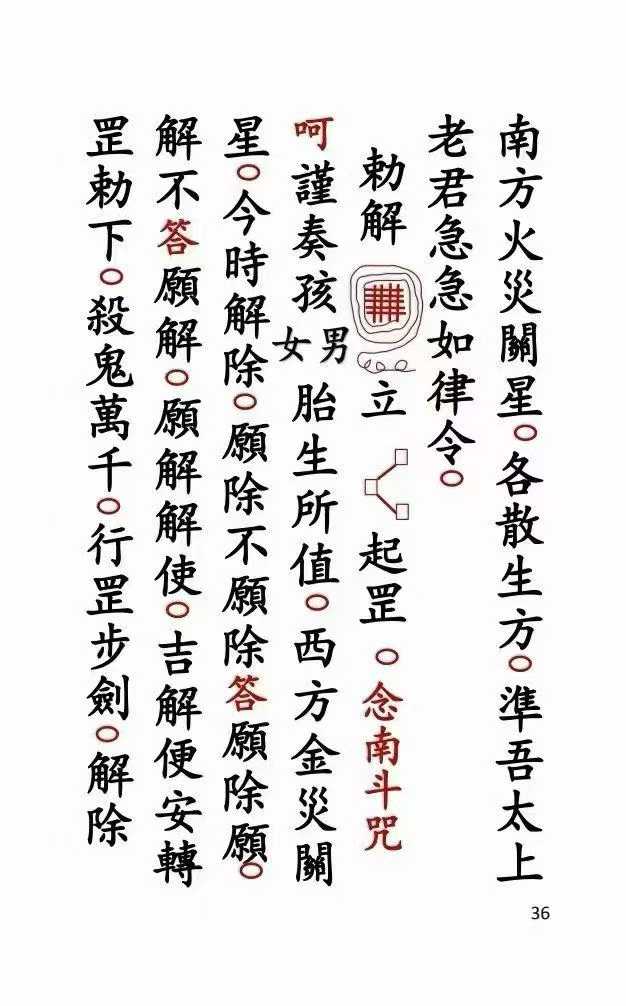 南方火災關星○各散生方○準吾太上
老君急急如律令○
勅解立起罡○念南斗咒
呵謹奏孩男女胎生所值○西方金災關
星○今時解除○願除不願除答願除願○
解不答願解○願解解使○吉解便安轉
罡勅下○殺鬼萬千○行罡步劍○解除
36